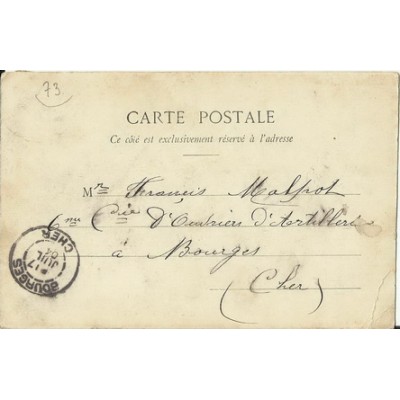 73
CARTE POSTALE
Ce côté est exclusivement réservé à l'adresse
Mr Francis Malpot
6eme Cie D'Ouvriers d'Artillerie
à Bourges
(Cher)
BOURGES
17
JUIL
CHER